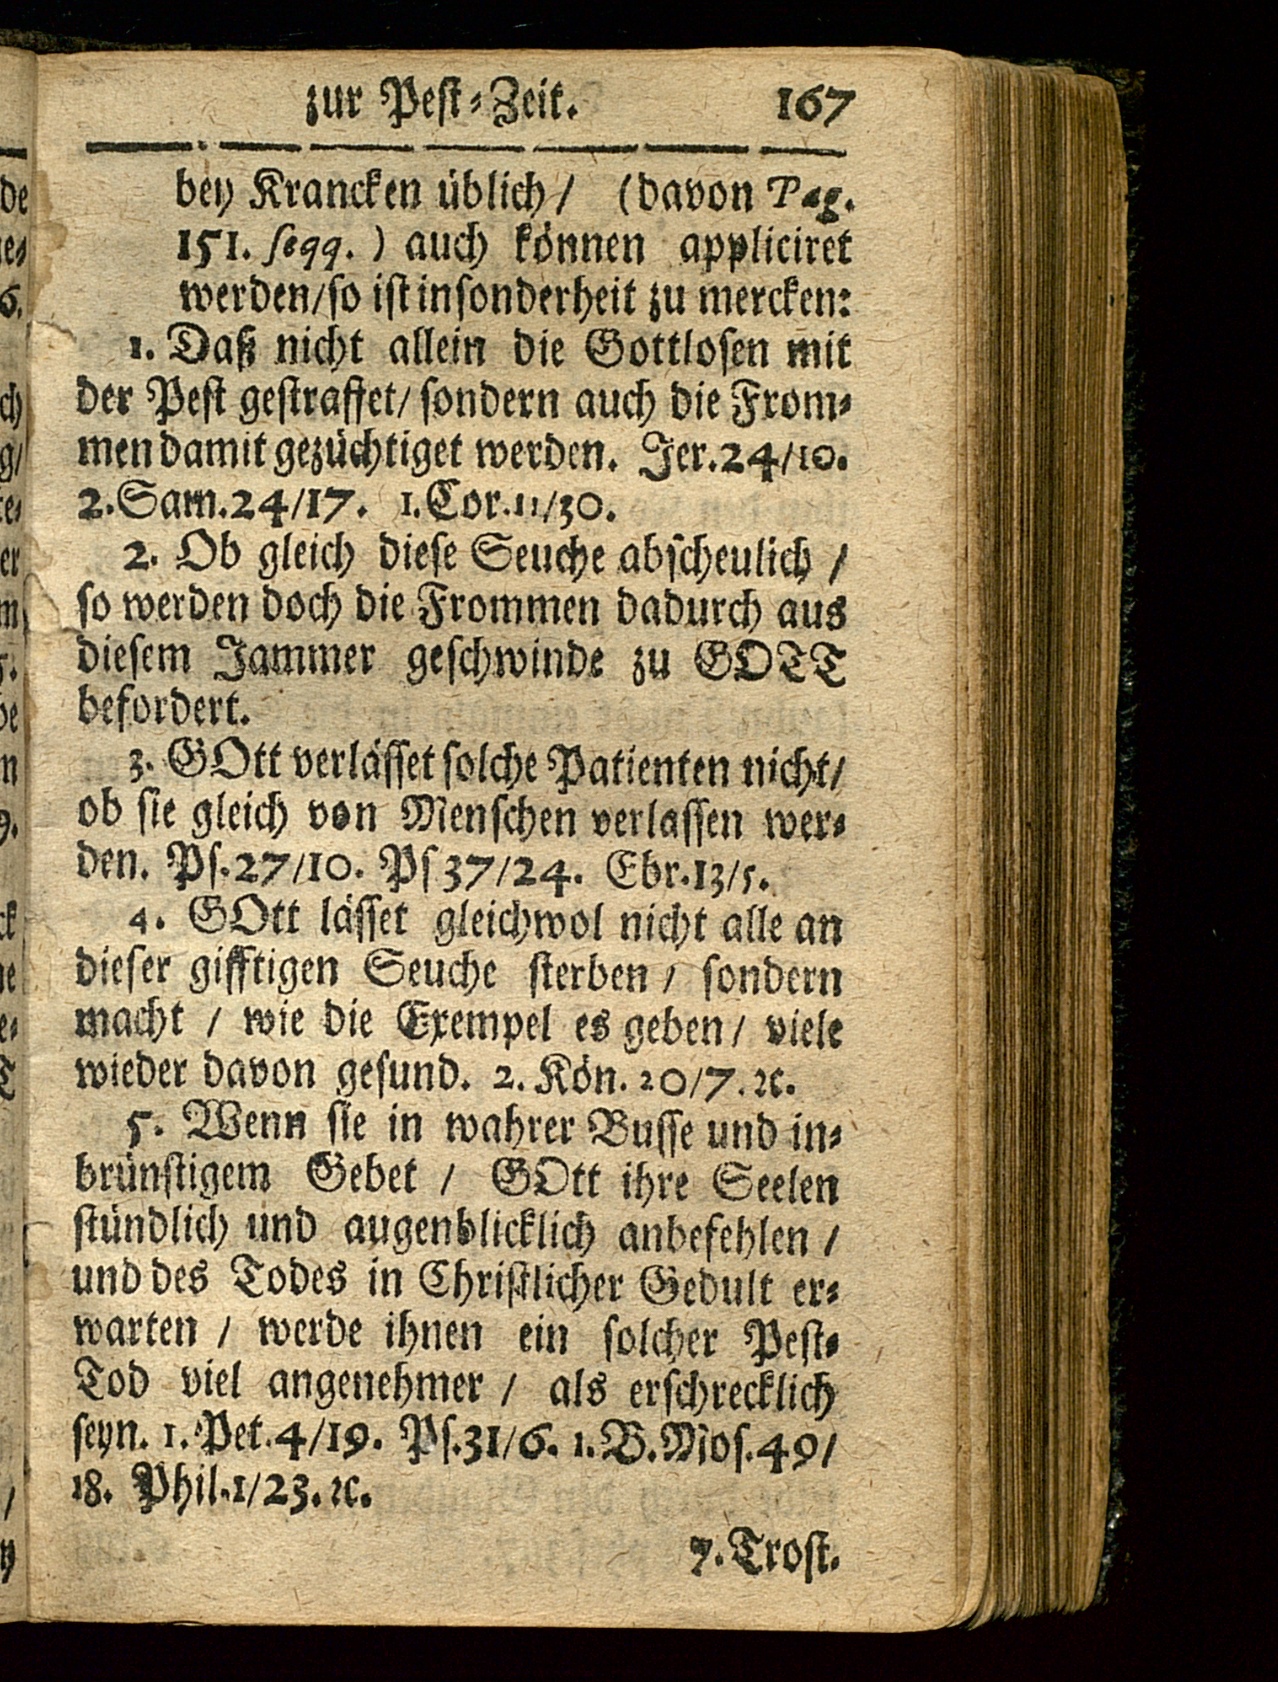 zur Pest-Zeit. 167
bey Krancken üblich / (davon Pag.
151. seqq. ) auch können appliciret
werden/so ist insonderheit zu mercken:
1. Daß nicht allein die Gottlosen mit
der Pest gestraffet/ sondern auch die From-
men damit gezüchtiget werden. Jer.24/10.
2.Sam.24/17. 1.Cor.11/30.
2. Ob gleich diese Seuche abscheulich /
so werden doch die Frommen dadurch aus
diesem Jammer geschwinde zu GOTT
befordert.
3. GOtt verlässet solche Patienten nicht/
ob sie gleich von Menschen verlassen wer-
den. Ps.27/10. Ps 37/24. Ebr.13/5.
4. GOtt lässet gleichwol nicht alle an
dieser gifftigen Seuche sterben / sondern
macht / wie die Exempel es geben / viele
wieder davon gesund. 2. Kön. 20/7. ꝛc.
5. Wenn sie in wahrer Busse und in-
brünstigem Gebet / GOtt ihre Seelen
stündlich und augenblicklich anbefehlen /
und des Todes in Christlicher Gedult er-
warten / werde ihnen ein solcher Pest-
Tod viel angenehmer / als erschrecklich
seyn. 1. Pet.4/19. Ps.31/6. 1.B.Mos.49/
18. Phil.1/23. ꝛc.
7. Trost.